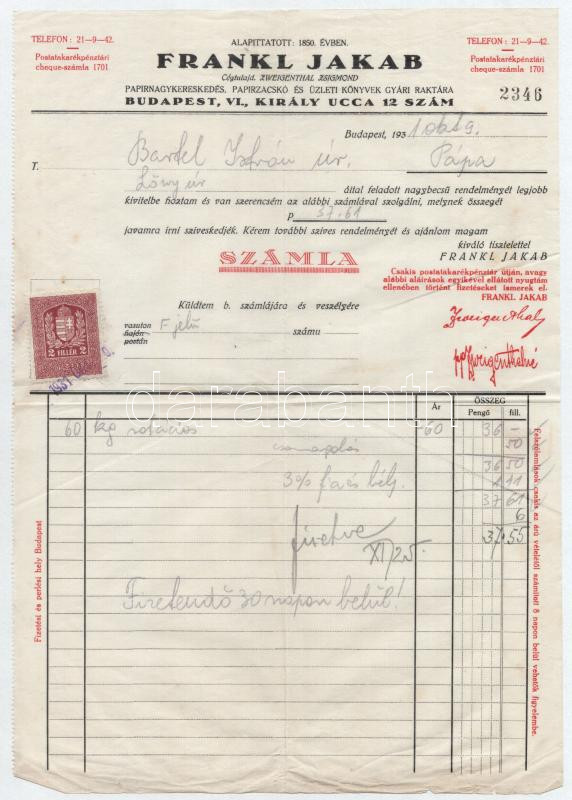 TELEFON: 21-9-42.
Postatakarékpénztári
cheque-számla 1701
ALAPITTATOTT: 1850. ÉVBEN.
FRANKL JAKAB
Cégtulajd. ZWEIGENTHAL ZSIGMOND
PAPIRNAGYKERESKEDÉS, PAPIRZACSKÓ ÉS ÜZLETI KÖNYVEK GYÁRI RAKTÁRA
BUDAPEST, VI., KIRÁLY UCCA 12 SZÁM
TELEFON: 21-9-42.
Postatakarékpénztári
cheque-számla 1701
2346
Budapest, 1931 okt 9.
T. Bartel István úr. Pápa
Lőwy úr által feladott nagybecsű rendelményét legjobb
kivitelbe hoztam és van szerencsém az alábbi számlával szolgálni, melynek összegét
P 37.61
javamra irni sziveskedjék. Kérem további szives rendelményét és ajánlom magam
kiváló tisztelettel
FRANKL JAKAB
SZÁMLA
Csakis postatakarékpénztár útján, avagy
alábbi aláirások egyikével ellátott nyugtám
ellenében történt fizetéseket ismerek el.
FRANKL JAKAB
Zweigenthal
pp Zweigenthalné
Küldtem b. számlájára és veszélyére
vasuton
hajón
postán
F jelü számu
2 FILLÉR 2
1931
Ár
ÖSSZEG
Pengő fill.
60 kg rotációs -60 36 -
csomagolás 50
36 50
3% fa és bély. 1 11
37 61
6
37.55
fizetve
XI/25.
Fizetendő 30 napon belül!
Fizetési és perlési hely Budapest
Felszólamlások csakis az árú vételétől számított 8 napon belül vehetők figyelembe.
darabanth